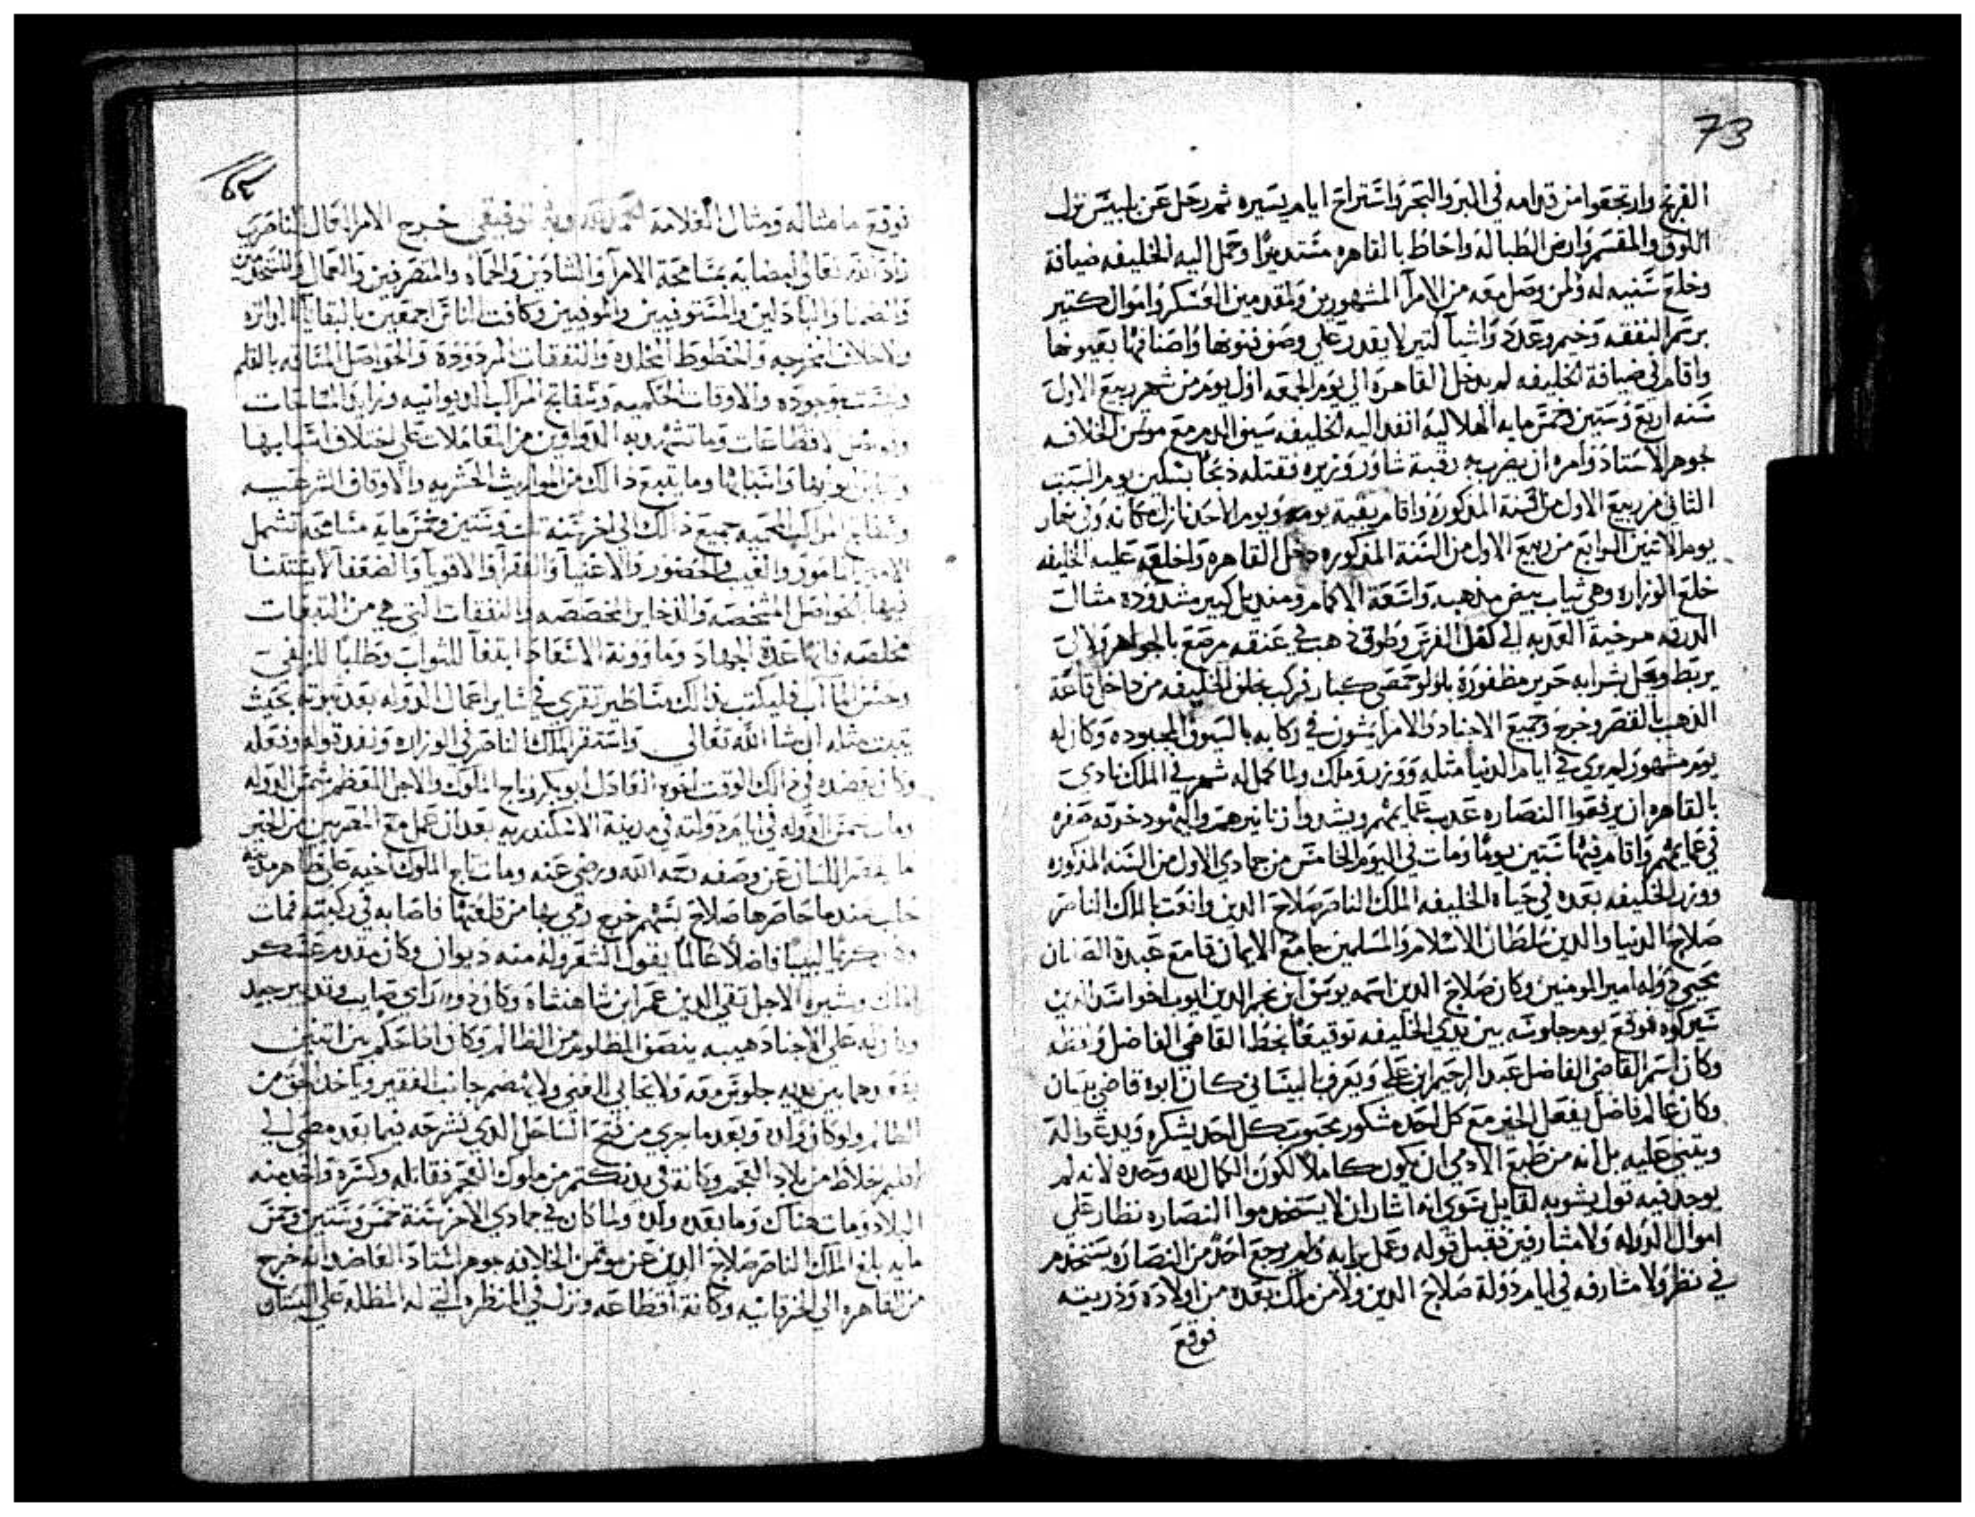 73
الفرنج وارتجعوا من قدامه في البر والبحر واستراح ايام يسيره ثم رحل عن بلبيس نزل
اللوق والمقسم وارض الطباله واحاط بالقاهره مستديرًا وحمل اليه الخليفه ضيافة
وخلع سنيه له ولمن وصل معه من الامرآ المشهورين ولمقدمين العسكر واموال كتير
برسم النفقه وخيم وعدد واشيآ كتير لا يقدر علي وصف فنونها واصنافها بعيونها
واقام في ضيافة الخليفه لم يدخل القاهرة الي يوم الجمعه اول يوم من شهر ربيع الاول
سنه اربع وستين وخمس مايه الهلاليه انفد اليه الخليفه سيف الدين مع موتمن الخلافه
جوهر الاستاذ وامره ان يضرب به رقبة شاور وزيره فقتله ذبحًا بسكين يوم السبت
الثاني من ربيع الاول من السنة المذكوره واقام بقية يومه ويوم الاحد نازل مكانه وفي نهار
يوم الاتنين الرابع من ربيع الاول من السنة المذكوره دخل القاهره واخلع عليه الخليفه
خلع الوزاره وهي ثياب بيض مذهبه واسعة الاكمام ومنديل كبير مشدوده مثالت
الدرقه مرخية العذبه الي كفل الفرس وطوق ذهب في عنقه مرصع بالجواهر ولالت
يربط ومحل بشرابه حرير مظفورة بلولو حمصي كبار فركب بخلق الخليفه من داخل قاعة
الذهب بالقصر وخرج وجميع الاجناد والامرا يمشون في ركابه بالسيوف المجبوده وكان له
يوم مشهور لم يري في ايام الدنيا مثله ووزر وملك ولما كمل له شهر في الملك نادي
بالقاهره ان يرفعوا النصاره عدب عمايمهم ويشدوا زنانيرهم واليهود خرقه صفره
في عمايمهم واقام فيها ستين يومًا ومات في اليوم الخامس من جمادي الاول من السنه المذكوره
ووزر للخليفه بعده في حياه الخليفه الملك الناصر صلاح الدين وانعت بالملك الناصر
صلاح الدنيا والدين سلطان الاسلام والمسلمين جامع الايمان قامع عبدة الصلبان
محيي دوله امير المومنين وكان صلاح الدين اسمه يوسف ابن نجم الدين ايوب اخو اسد الدين
شيركوه فوقع يوم جلوسه بين يدي الخليفه توقيعًا بخط القاضي الفاضل ولفظه
وكان اسم القاضي الفاضل عبد الرحيم ابن علي ويعرف بالبيساني كان ابوه قاضي بيسان
وكان عالم فاضل يفعل الخير مع كل احد مشكور محبوب كل احد يشكره ويدعوا له
ويثني عليه بل انه من طبع الادمي ان يكون كاملًا لكون الكمال لله وحده لانه لم
يوجد فيه قول يشوبه لقايل سوي انه اشار ان لا يستخدموا النصاره نظار علي
اموال الدوله ولا مشارفين فقبل قوله وعمل برايه ولم يرجع احد من النصاره يستخدم
في نظر ولا مشارفه في ايام دولة صلاح الدين ولا من ملك بعده من اولاده وذريته
فوقع
فوقع ما مثاله ومثال العلامة الحمد لله وبه توفيقي خرج الامر العال الناصري
زاد الله تعالي امضايه بمسامحة الامرآ والشادين والحماه والمتصرفين والعمال والمستخدمين
والضمنا والبادلين والمستوفيين والموفيين وكافت الناس اجمعين بالبقايا
والخطوط المخلده والنفقات المردودة والحواصل المساقه بالقلم
وجوده والاوقات الحكميه وسفايح المراكب الديوانيه
الاقطاعات وما تشهد به الدواوين من المعاملات علي اختلاف اسبابها
واسبابها وما يتبع ذالك من المواريث الحشريه والاوقاف الشرعيه
جميع ذالك الي اخر سنه وستين وخمس مايه مسامحة تشمل
والغيب والحضور والاغنيآ والفقرآ والاقويآ والضعفآ لا يستتنا
فيها الحواصل المشخصه والذخاير المخصصه والنفقات التي هي من التبعات
مخلصه فانها عدة الجهاد وماوونة الاسعاد ابتغآ للثواب وطلبًا للزلفي
وحسن الماآب فليكتب بذالك مساطير تقري في ساير اعمال الدوله بعد ثبوته بحيث
يثبت مثله ان شا الله تعالي واستقر الملك الناصر في الوزاره ونفد قوله وفعله
وكان يعضده في ذالك الوقت اخوه العادل ابو بكر وتاج الملوك والاجل المعظم شمس الدوله
ومات شمس الدوله في ايام دولته في مدينة الاسكندريه بعد ان عمل مع المصريين من الخير
ما يفتر اللسان عن وصفه رحمه الله ورضي عنه ومات تاج الملوك اخيه علي ظاهر مدينة
حلب عندما حاصرها صلاح بسهم خرج رمي بها من قلعتها فاصابه في ركبته فمات
وكان كريمًا لبيبًا فاضلًا عالمًا يقول الشعر وله منه ديوان وكان مقدم عسكر
الملك ومشيره الاجل تقي الدين عمر ابن شاهنشاه وكان ذو راي صايب وتدبير جيد
وكان له علي الاجناد هيبه ينصف المظلوم من الظالم وكان اذا حكم بين اتنين
وهما بين يديه جلوس معه ولا يحابي الغني ولا يهضم جانب الفقير وياخذ الحق من
الظالم ولو كان ولده وبعد ما جري من فتح الساحل الذي نشرحه فيما بعد مضي الي
اقليم خلاط من بلاد العجم وكانة في يد بكتمر من ملوك العجم فقاتله وكسره واخد منه
البلاد ومات هناك وما بعده ولده ولما كان في جمادي الاخر سنة خمس وستين وخمس
مايه بلغ الملك الناصر صلاح الدين عن موتمن الخلافه جوهر استاذ العاضد انه خرج
من القاهره الي الخرقانيه وكانة اقطاعه ونزل في المنظره التي له المطله علي البستان